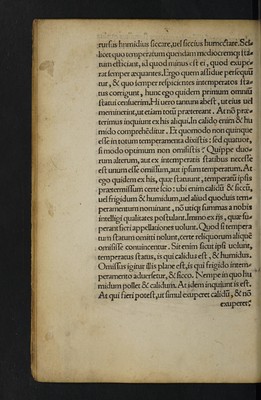 rursus humidius siccare, uel siccius humectare. Sci-
licet quo temperatum quendam mediocremq́; sta-
tum efficiant, id quod minus est ei, quod exupe-
rat semper æquantes. Ergo quem assidue persequũ
tur, & quo semper respicientes intemperatos sta-
tus corrigunt, hunc ego quidem primum omniũ
statui censuerim. Hi uero tantum absẽt, ut eius uel
meminerint, ut etiam totũ prætereant. At nõ præ-
terimus inquiunt ex his aliqui. In calido enim & hu
mido comprehẽditur. Et quomodo non quinque
esse in totum temperamenta dixistis: sed quatuor,
si modo optimum non omisistis? Quippe duo-
rum alterum, aut ex intemperatis statibus necesse
est unum esse omissum, aut ipsum temperatum. At
ego quidem ex his, quæ statuunt, temperatũ ipsis
prætermissum certe scio: ubi enim calidũ & siccũ,
uel frigidum & humidum, uel aliud quoduis tem-
peramentum nominant, nõ utiq; summas a nobis
intelligi qualitates postulant. Immo ex ijs, quæ su-
perant fieri appellationes uolunt. Quod si tempera
tum statum omitti nolunt, certe reliquorum aliquẽ
omisisse conuincentur. Sit enim sicut ipsi uolunt,
temperatus status, is qui calidus est, & humidus.
Omissus igitur illis plane est, is qui frigido intem-
peramento aduersetur, & sicco. Nempe in quo hu
midum pollet & calidum. At idem inquiunt is est.
At qui fieri potest, ut simul exuperet calidũ, & nõ
exuperet?